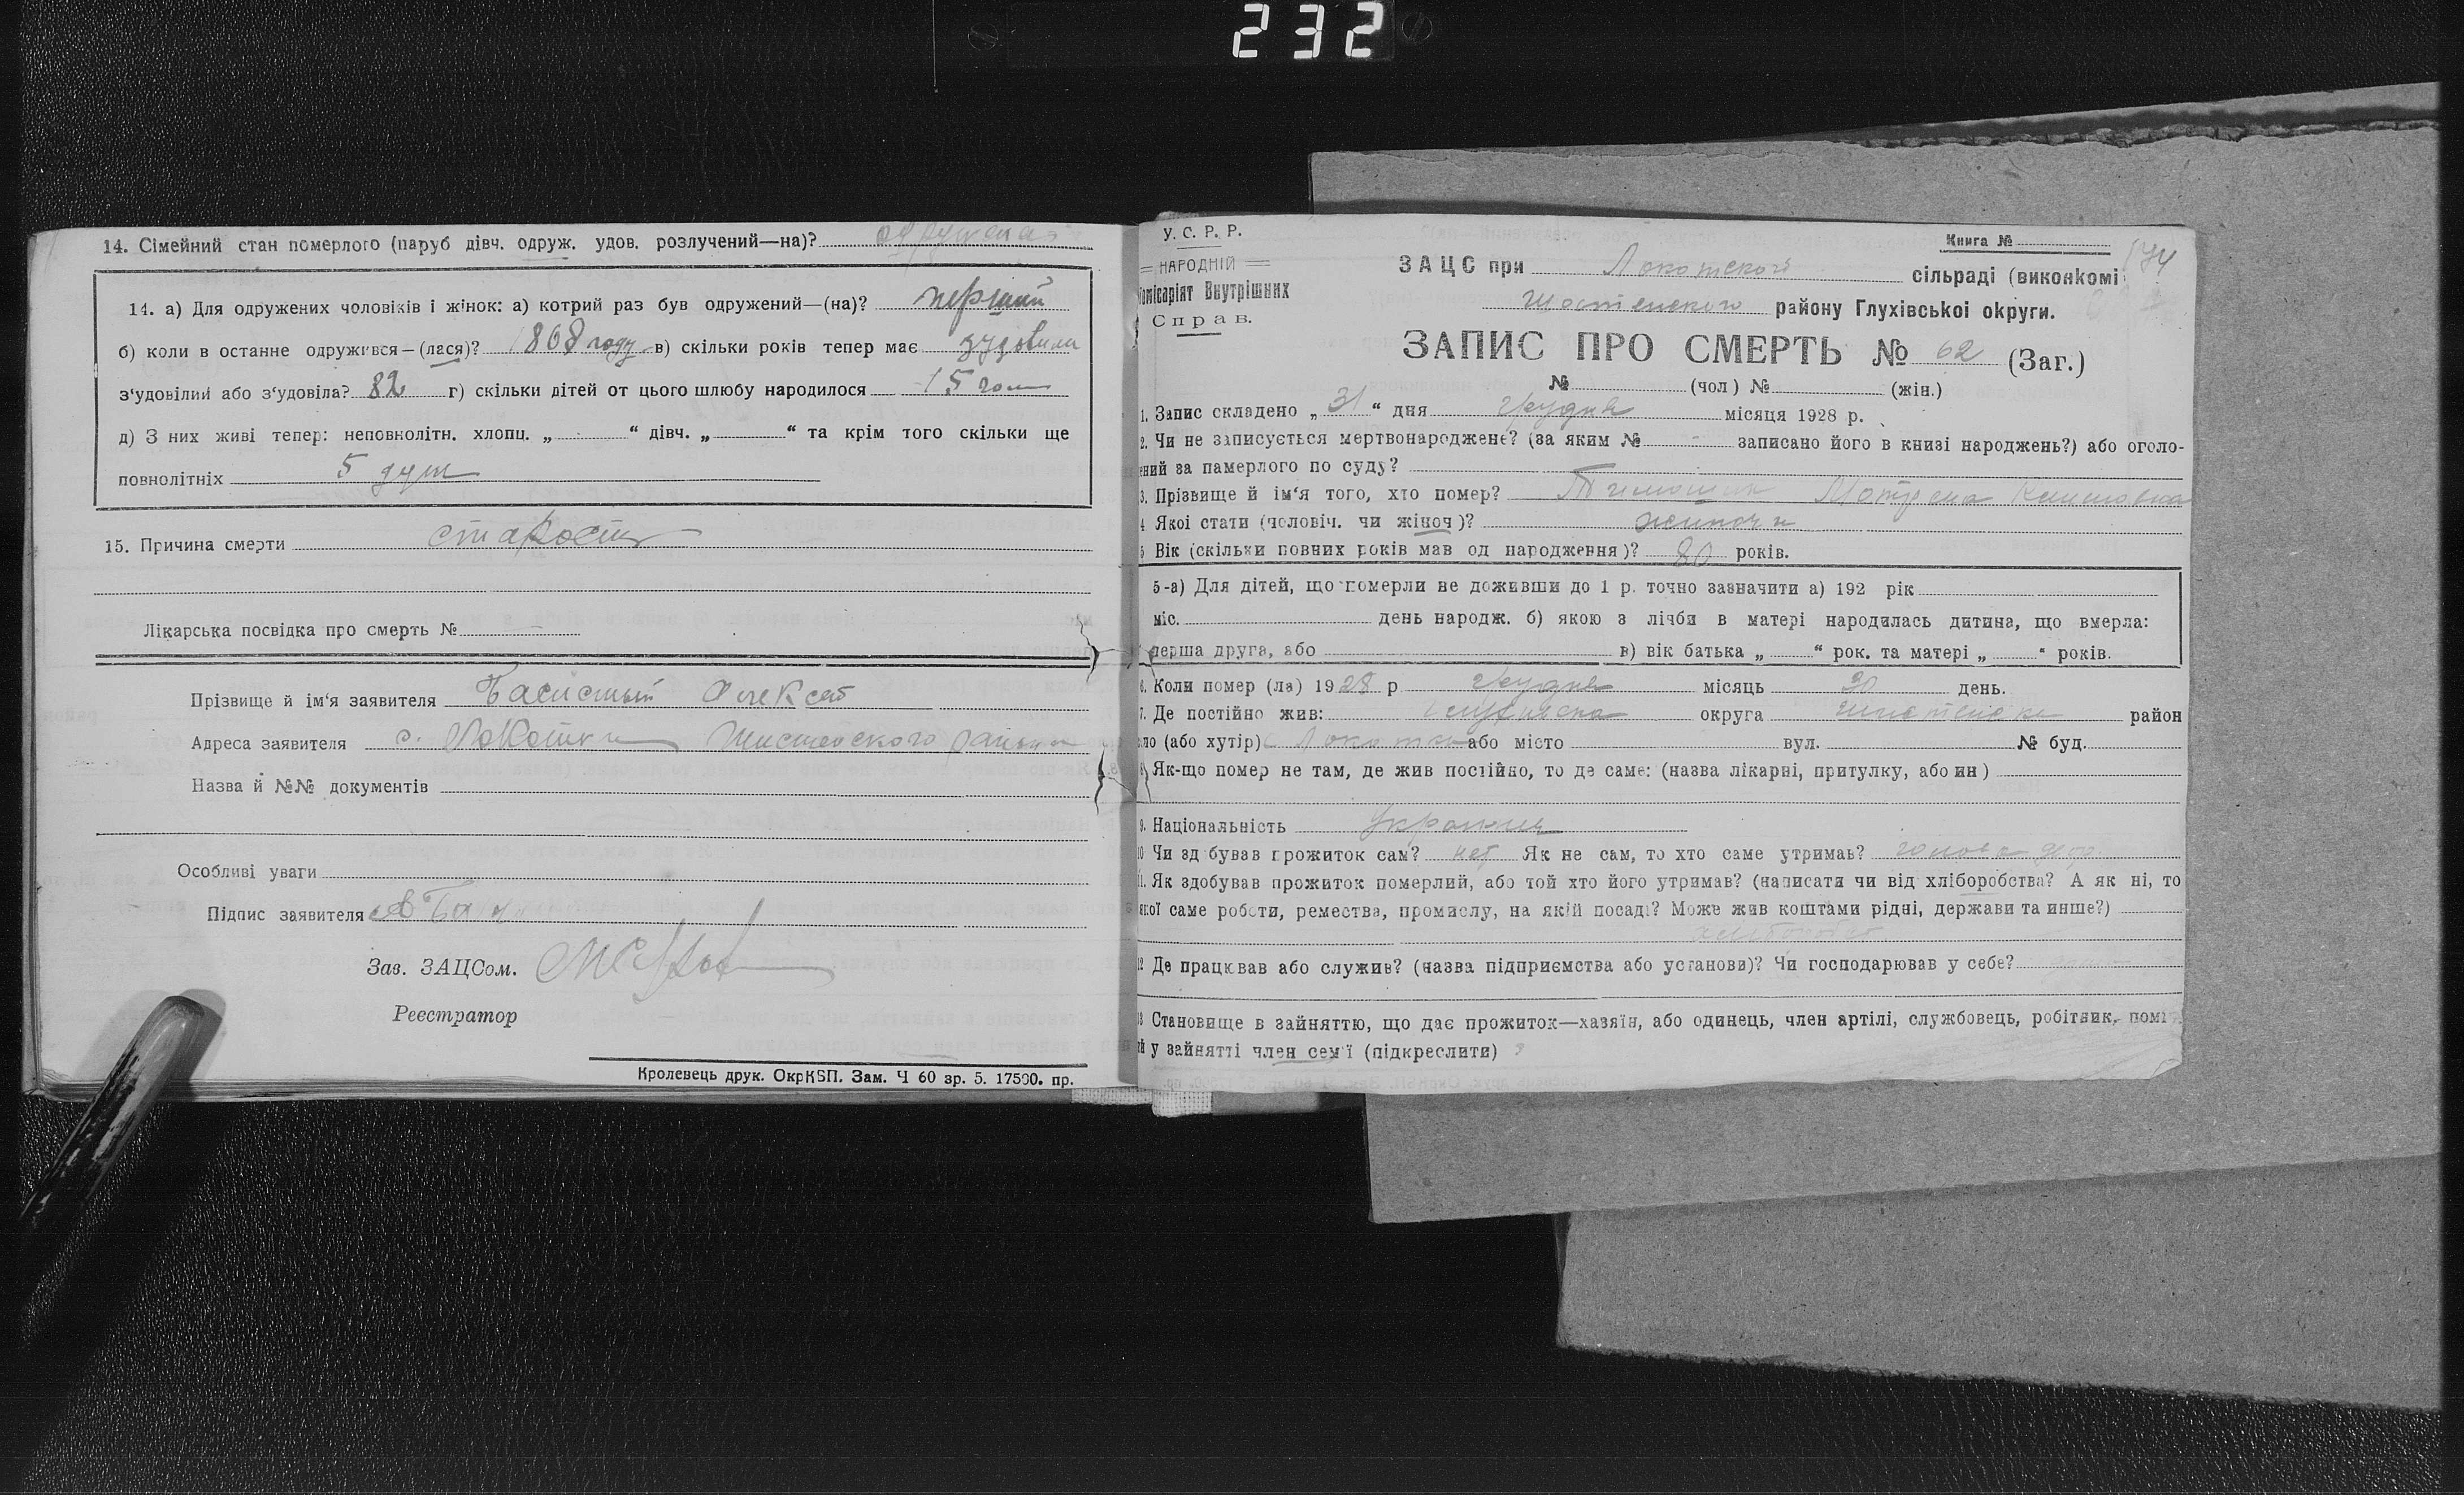 232
14. Сімейний стан померлого (паруб дівч. одруж. удов. розлучений—на)? одружена
14. а) Для одружених чоловіків і жінок: а) котрий раз був одружений—(на)? перший
б) коли в останне одружився—(лася)? 1868 году в) скільки років тепер має зудовили
з'удовілий або з'удовіла? 82 г) скільки дітей от цього шлюбу народилося 15
д) З них живі тепер: неповнолітн. хлопц. „ “ дівч. „ “ та крім того скільки ще
повнолітніх 5 душ
15. Причина смерти старость
Лікарська посвідка про смерть №
Прізвище й ім'я заявителя Басистый Алексей
Адреса заявителя с. Локотки района
Назва й №№ документів
Особливі уваги
Підпис заявителя
Зав. ЗАЦСом.
Реєстратор
Кролевець друк. ОкрКВП. Зам. Ч 60 зр. 5. 17500. пр.
У. С. Р. Р.
НАРОДНІЙ
комісаріят Внутрішних
Справ.
Книга № 174
ЗАЦС при Локотской сільраді (виконкомі
Шостенского району Глухівської округи.
ЗАПИС ПРО СМЕРТЬ № 62 (Заг.)
№ (чол) № (жін.)
1. Запис складено „ 31 “ дня Грудня місяця 1928 р.
2. Чи не записується мертвонароджене? (за яким № записано його в книзі народжень?) або оголо-
ений за памерлого по суду?
3. Прізвище й ім'я того, хто помер? Тимошик Мотрона
4 Якої стати (человіч. чи жіноч)? жиноча
5 Вік (скільки повних років мав од народження)? 80 років.
5-а) Для дітей, що померли не доживши до 1 р. точно зазначити а) 192 рік
міс. день народж. б) якою з лічби в матері народилась дитина, що вмерла:
перша друга, або в) вік батька „ “ рок. та матері „ “ років.
6. Коли помер (ла) 1928 р Грудня місяць 30 день.
7. Де постійно жив: Глухивска округа район
ло (або хутір) с Локотки або місто вул. № буд.
Як-що помер не там, де жив постійно, то де саме: (назва лікарні, притулку, або ин)
9. Національність украинец
10 Чи здобував прожиток сам? нет Як не сам, то хто саме утримав? голова
11. Як здобував прожиток померлий, або той хто його утримав? (написати чи від хліборобства? А як ні, то
якої саме роботи, ремества, промислу, на якій посаді? Може жив коштами рідні, держави та инше?)
12 Де працював або служив? (назва підприємства або установи)? Чи господарював у себе?
13 Становище в зайняттю, що дає прожиток—хазяїн, або одинець, член артілі, службовець, робітник, помі
ий у зайнятті член сем'ї (підкреслити)